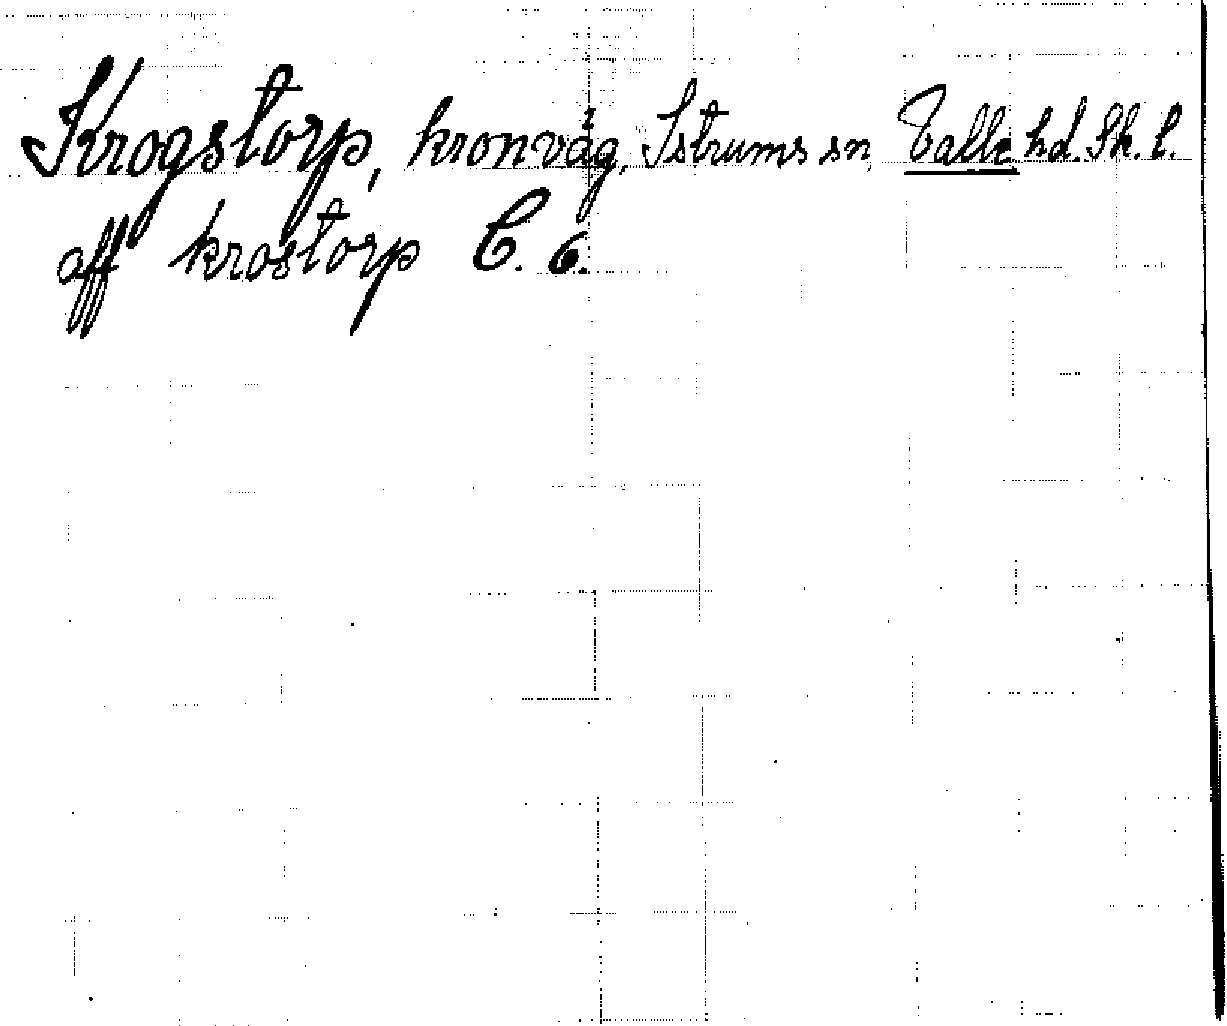 Krogstorp, kronväg, Istrums sn, Valle hd. Sk. l.
aff krostorp C. 6.